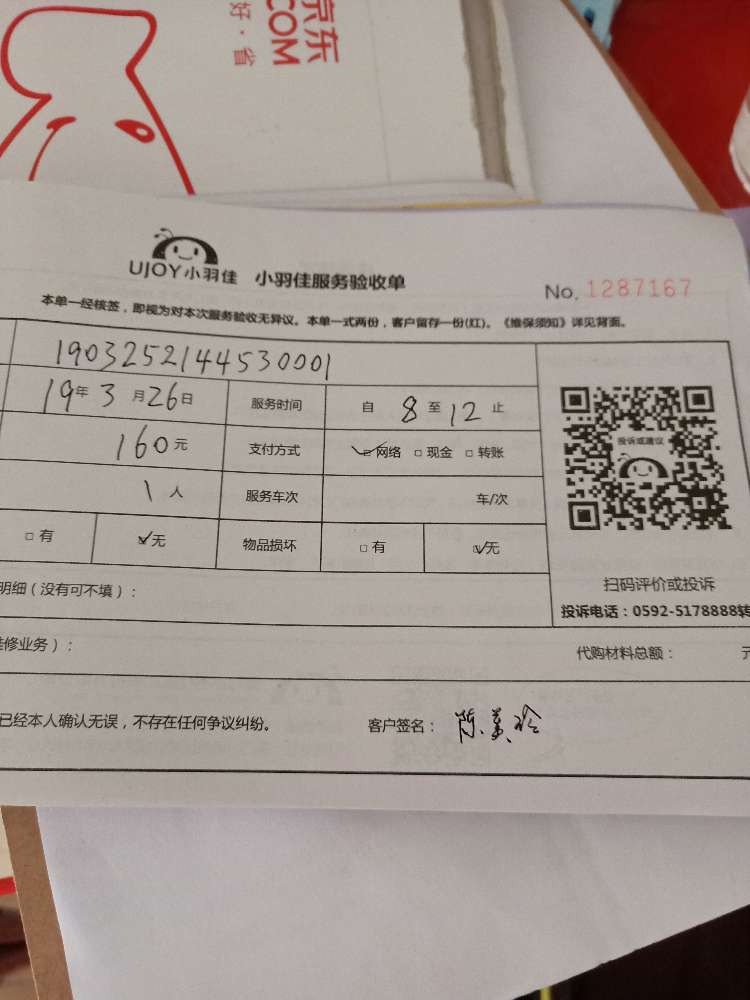 京东
.COM
好·省
UJOY小羽佳 小羽佳服务验收单
No. 1287167
本单一经核签，即视为对本次服务验收无异议。本单一式两份，客户留存一份(红)。《维保须知》详见背面。
1903252144530001
19年3月26日 服务时间 自 8 至 12 止
160元 支付方式 ☑网络 □现金 □转账
1人 服务车次 车/次
□有 ☑无 物品损坏 □有 ☑无
投诉或建议
扫码评价或投诉
投诉电话：0592-5178888转
明细（没有可不填）：
维修业务）： 代购材料总额： 元
已经本人确认无误，不存在任何争议纠纷。 客户签名：陈美玲